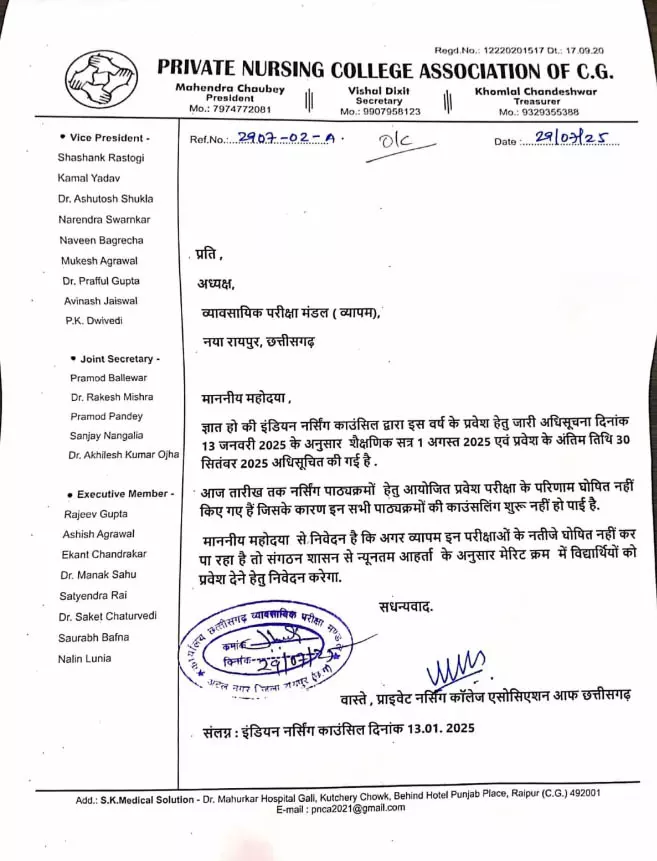 Regd.No.: 12220201517 Dt.: 17.09.20
PRIVATE NURSING COLLEGE ASSOCIATION OF C.G.
Mahendra Chaubey
President
Mo.: 7974772081
Vishal Dixit
Secretary
Mo.: 9907958123
Khomlal Chandeshwar
Treasurer
Mo.: 9329355388
Ref.No.: 2907-02-A.
O/C
Date: 29/07/25
• Vice President -
Shashank Rastogi
Kamal Yadav
Dr. Ashutosh Shukla
Narendra Swarnkar
Naveen Bagrecha
Mukesh Agrawal
Dr. Prafful Gupta
Avinash Jaiswal
P.K. Dwivedi
• Joint Secretary -
Pramod Ballewar
Dr. Rakesh Mishra
Pramod Pandey
Sanjay Nangalia
Dr. Akhilesh Kumar Ojha
• Executive Member -
Rajeev Gupta
Ashish Agrawal
Ekant Chandrakar
Dr. Manak Sahu
Satyendra Rai
Dr. Saket Chaturvedi
Saurabh Bafna
Nalin Lunia
प्रति ,
अध्यक्ष,
व्यावसायिक परीक्षा मंडल ( व्यापम),
नया रायपुर, छत्तीसगढ़
माननीय महोदया ,
ज्ञात हो की इंडियन नर्सिंग काउंसिल द्वारा इस वर्ष के प्रवेश हेतु जारी अधिसूचना दिनांक
13 जनवरी 2025 के अनुसार शैक्षणिक सत्र 1 अगस्त 2025 एवं प्रवेश के अंतिम तिथि 30
सितंबर 2025 अधिसूचित की गई है .
आज तारीख तक नर्सिंग पाठ्यक्रमों हेतु आयोजित प्रवेश परीक्षा के परिणाम घोषित नहीं
किए गए हैं जिसके कारण इन सभी पाठ्यक्रमों की काउंसलिंग शुरू नहीं हो पाई है.
माननीय महोदया से निवेदन है कि अगर व्यापम इन परीक्षाओं के नतीजे घोषित नहीं कर
पा रहा है तो संगठन शासन से न्यूनतम आहर्ता के अनुसार मेरिट क्रम में विद्यार्थियों को
प्रवेश देने हेतु निवेदन करेगा.
सधन्यवाद.
कार्यालय छत्तीसगढ़ व्यावसायिक परीक्षा मण्डल
क्रमांक
दिनांक 29/07/25
अटल नगर जिला रायपुर (छ.ग.)
वास्ते , प्राइवेट नर्सिंग कॉलेज एसोसिएशन आफ छत्तीसगढ़
संलग्न : इंडियन नर्सिंग काउंसिल दिनांक 13.01. 2025
Add.: S.K.Medical Solution - Dr. Mahurkar Hospital Gali, Kutchery Chowk, Behind Hotel Punjab Place, Raipur (C.G.) 492001
E-mail : pnca2021@gmail.com